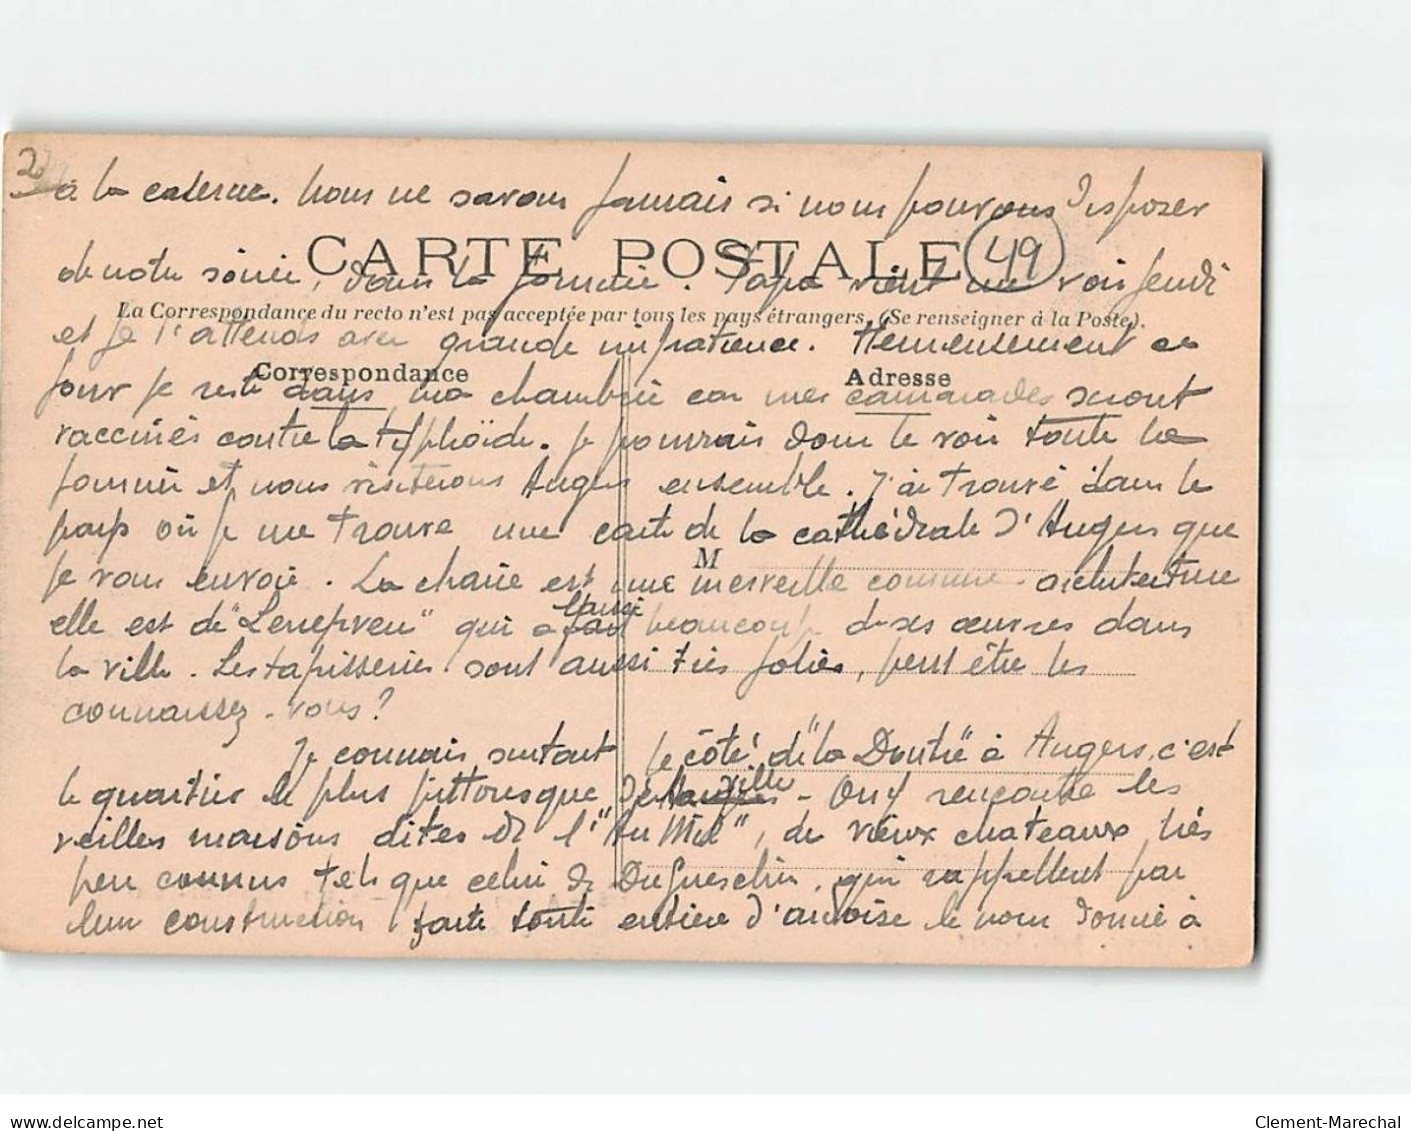 2
à la caserne. Nous ne savons jamais si nous pouvons disposer
CARTE POSTALE 49
de notre soirée, dans la journée. Papa vient me voir jeudi
La Correspondance du recto n'est pas acceptée par tous les pays étrangers. (Se renseigner à la Poste).
et je l'attends avec grande impatience. Heureusement ce
Correspondance Adresse
jour je reste dans ma chambrée car mes camarades seront
vaccinés contre la typhoïde. je pourrais donc le voir toute la
journée et nous visiterons Angers ensemble. J'ai trouvé dans le
pays où je me trouve une carte de la cathédrale d'Angers que
M
je vous envoie. La chaire est une merveille comme architecture
elle est de "Lenepveu" qui a laissé beaucoup de ses œuvres dans
la ville. Les tapisseries sont aussi très jolies, peut être les
connaissez-vous?
Je connais surtout le côté de "la Doutre" à Angers, c'est
le quartier le plus pittoresque de la ville - On y rencontre les
vieilles maisons dites de l'"An Mil", de vieux chateaux très
peu connus tels que celui de Duguesclin, qui rappellent par
leur construction faite toute entière d'ardoise le nom donné à
Clement-Marechal